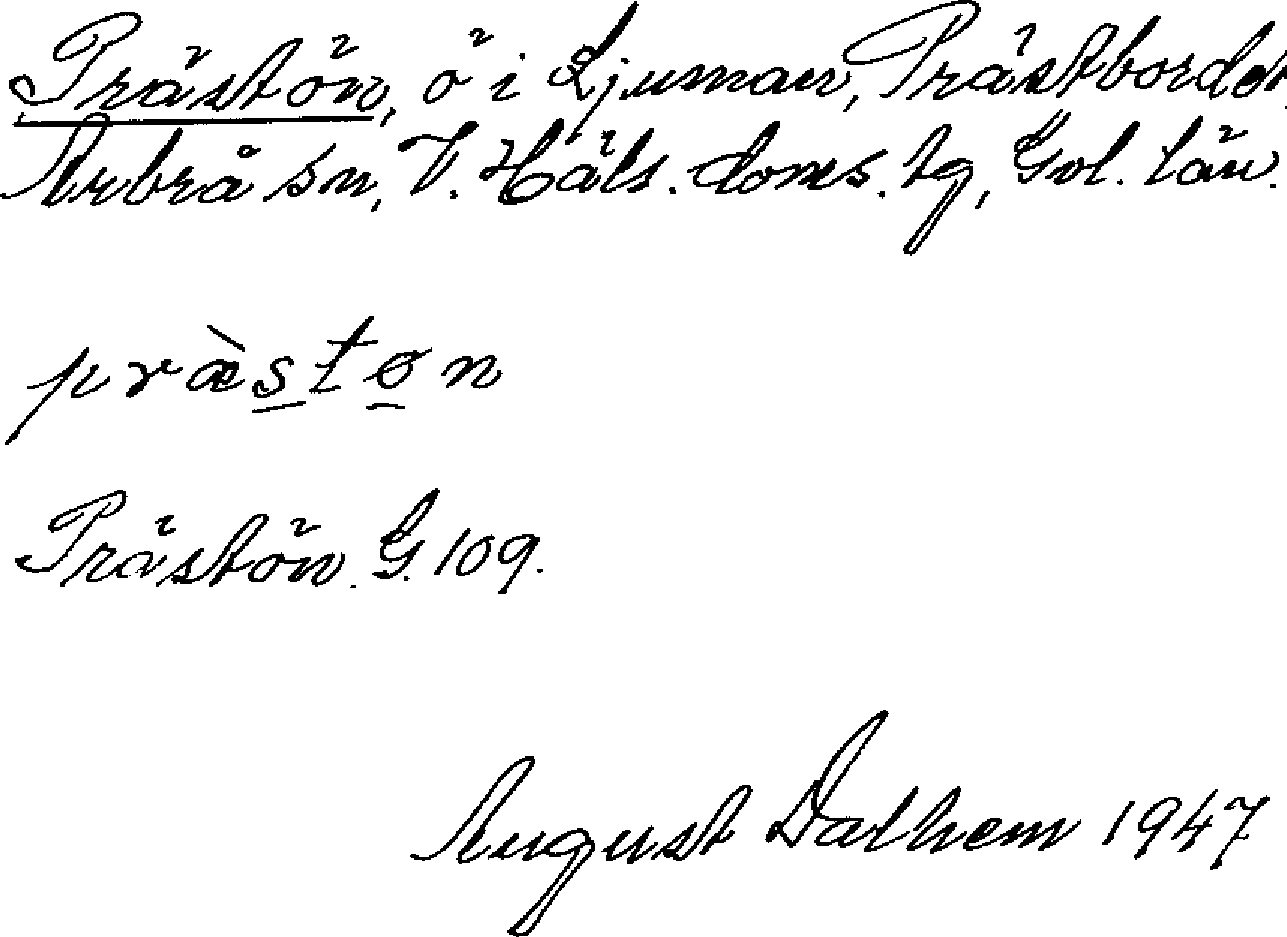 Prästön, ö i Ljusnan, Prästbordet
Arbrå sn, V. Häls. doms. tg, Gvl. län.
præ̀støn
Prästön. G. 109.
August Dalhem 1947